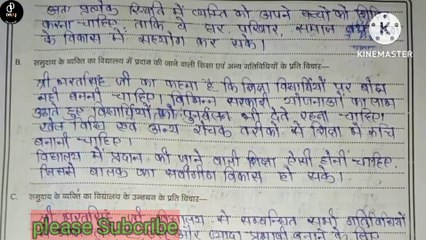 अतः प्रत्येक स्थिति में व्यक्ति को अपने बच्चों को शिक्षित
करना चाहिए ताकि वे घर, परिवार, समाज
के विकास में सहयोग कर सके।
KINEMASTER
B. समुदाय के व्यक्ति का विद्यालय में प्रदान की जाने वाली शिक्षा एवं अन्य गतिविधियों के प्रति विचार-
श्री भरतसिंह जी का कहना है कि शिक्षा विद्यार्थियों पर बोझ
नहीं बननी चाहिए। विभिन्न सरकारी योजनाओं का लाभ
उठाते हुए विद्यार्थियों को पुनर्बलन भी देते रहना चाहिए।
खेल विधि एवं अन्य रोचक तरीकों से शिक्षा में रुचि
बनानी चाहिए।
विद्यालय में प्रदान की जाने वाली शिक्षा ऐसी होनी चाहिए
जिससे बालक का सर्वांगीण विकास हो सके।
C. समुदाय के व्यक्ति का विद्यालय के उन्नयन के प्रति विचार-
श्री भरतसिंह से सम्बन्धित सभी गतिविधियों
please Subcribe
और ज्यादा प्रभावी बनाने के लिए